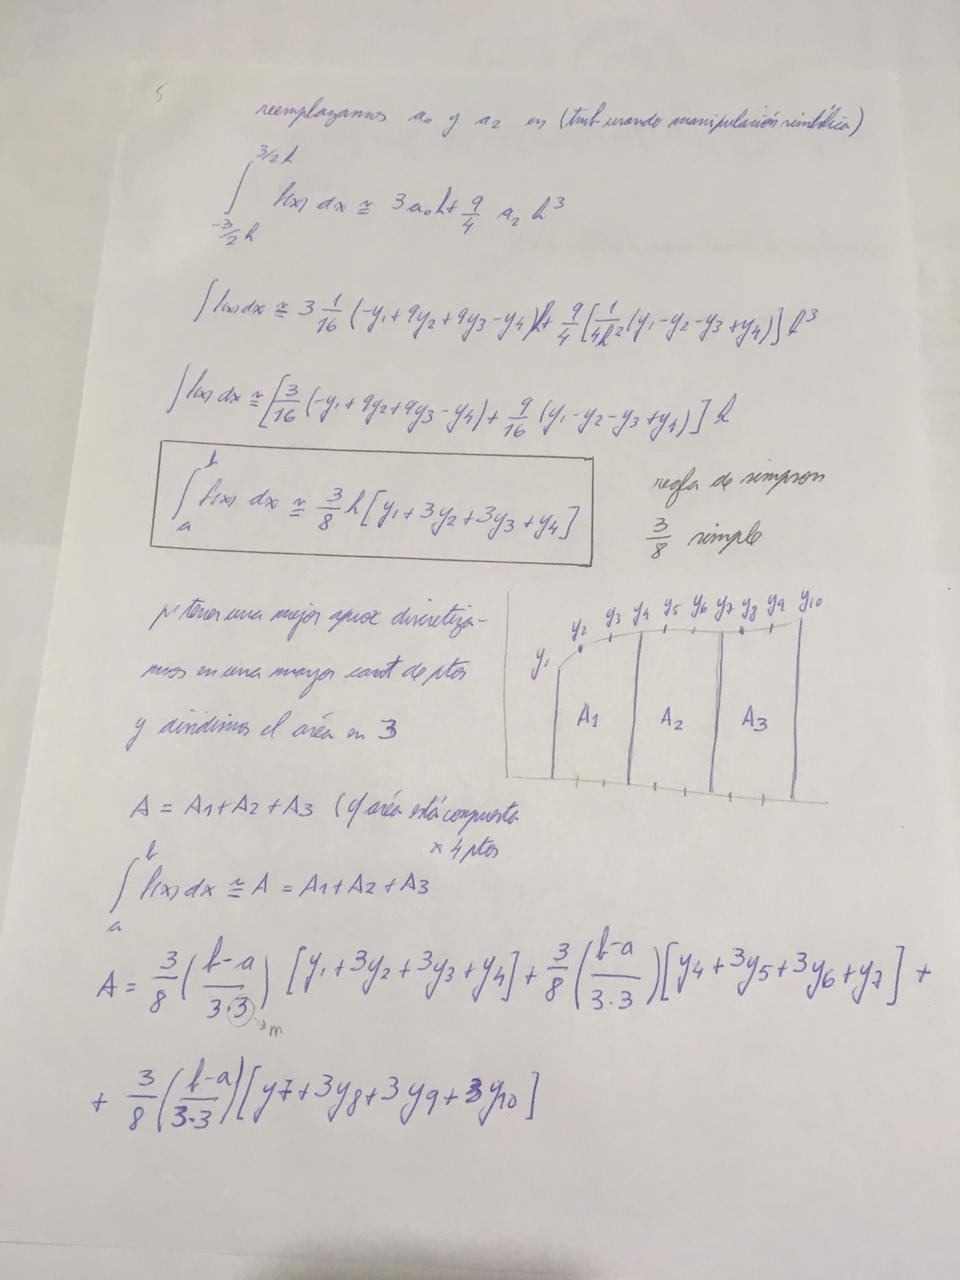 5
reemplazamos a₀ y a₂ en (tmb usando manipulación simbólica)
∫_{-3/2 h}^{3/2 h} f(x) dx ≅ 3 a₀ h + 9/4 a₂ h³
∫ f(x) dx ≅ 3 1/16 (-y₁ + 9y₂ + 9y₃ - y₄)h + 9/4 [1/4h² (y₁ - y₂ - y₃ + y₄)] h³
∫ f(x) dx ≅ [3/16 (-y₁ + 9y₂ + 9y₃ - y₄) + 9/16 (y₁ - y₂ - y₃ + y₄)] h
∫_a^b f(x) dx ≅ 3/8 h [y₁ + 3y₂ + 3y₃ + y₄]
regla de simpson
3/8 simple
p/ tener una mejor aprox discretiza-
mos en una mayor cant de ptos
y dividimos el área en 3
y₁ y₂ y₃ y₄ y₅ y₆ y₇ y₈ y₉ y₁₀
A₁ A₂ A₃
A = A₁ + A₂ + A₃ (c/ área está compuesta
x 4 ptos
∫_a^b f(x) dx ≅ A = A₁ + A₂ + A₃
A = 3/8 (b-a / 3·3) [y₁ + 3y₂ + 3y₃ + y₄] + 3/8 (b-a / 3·3) [y₄ + 3y₅ + 3y₆ + y₇] +
→ m
+ 3/8 (b-a / 3·3) [y7 + 3y₈ + 3y₉ + 3y₁₀]